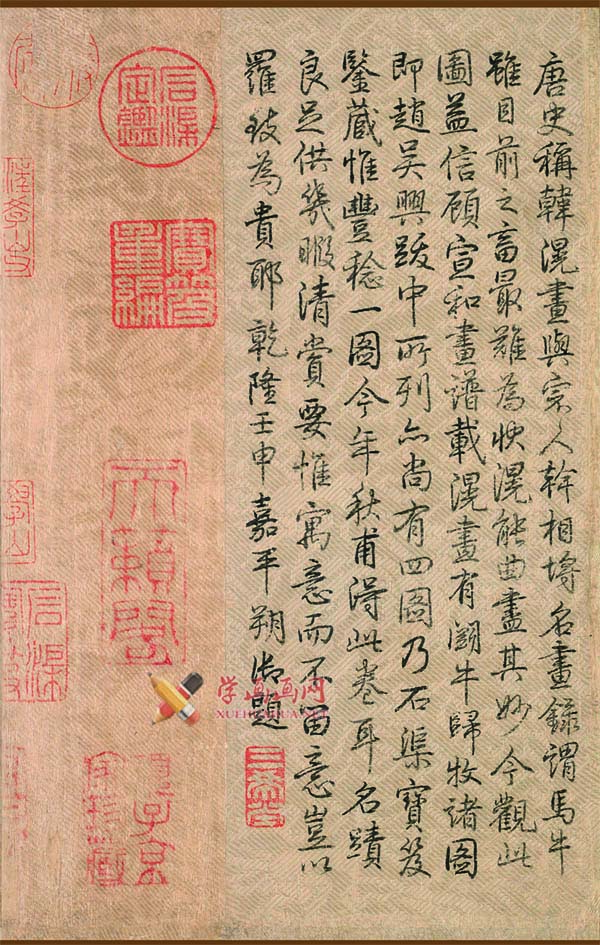 唐史稱韓滉畫與宗人幹相埒名畫錄謂馬牛
雖目前之畜最難為狀滉能曲盡其妙今觀此
圖益信顧宣和畫譜載滉畫有鬭牛歸牧諸圖
即趙吳興跋中所列亦尚有四圖乃石渠寶笈
鑒藏惟豐稔一圖今年秋甫得此卷耳名蹟
良足供幾暇清賞要惟寓意而不留意豈以
羅致為貴耶乾隆壬申嘉平朔御題
三希堂
石渠定鑑
寶笈重編
天籟閣
項子京家珍藏
学画画网
XUEHUAHUA.NET